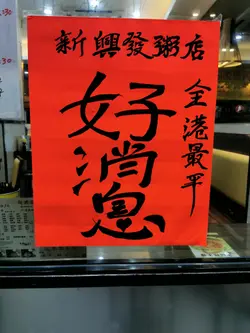 新興發粥店
好消息
全港最平